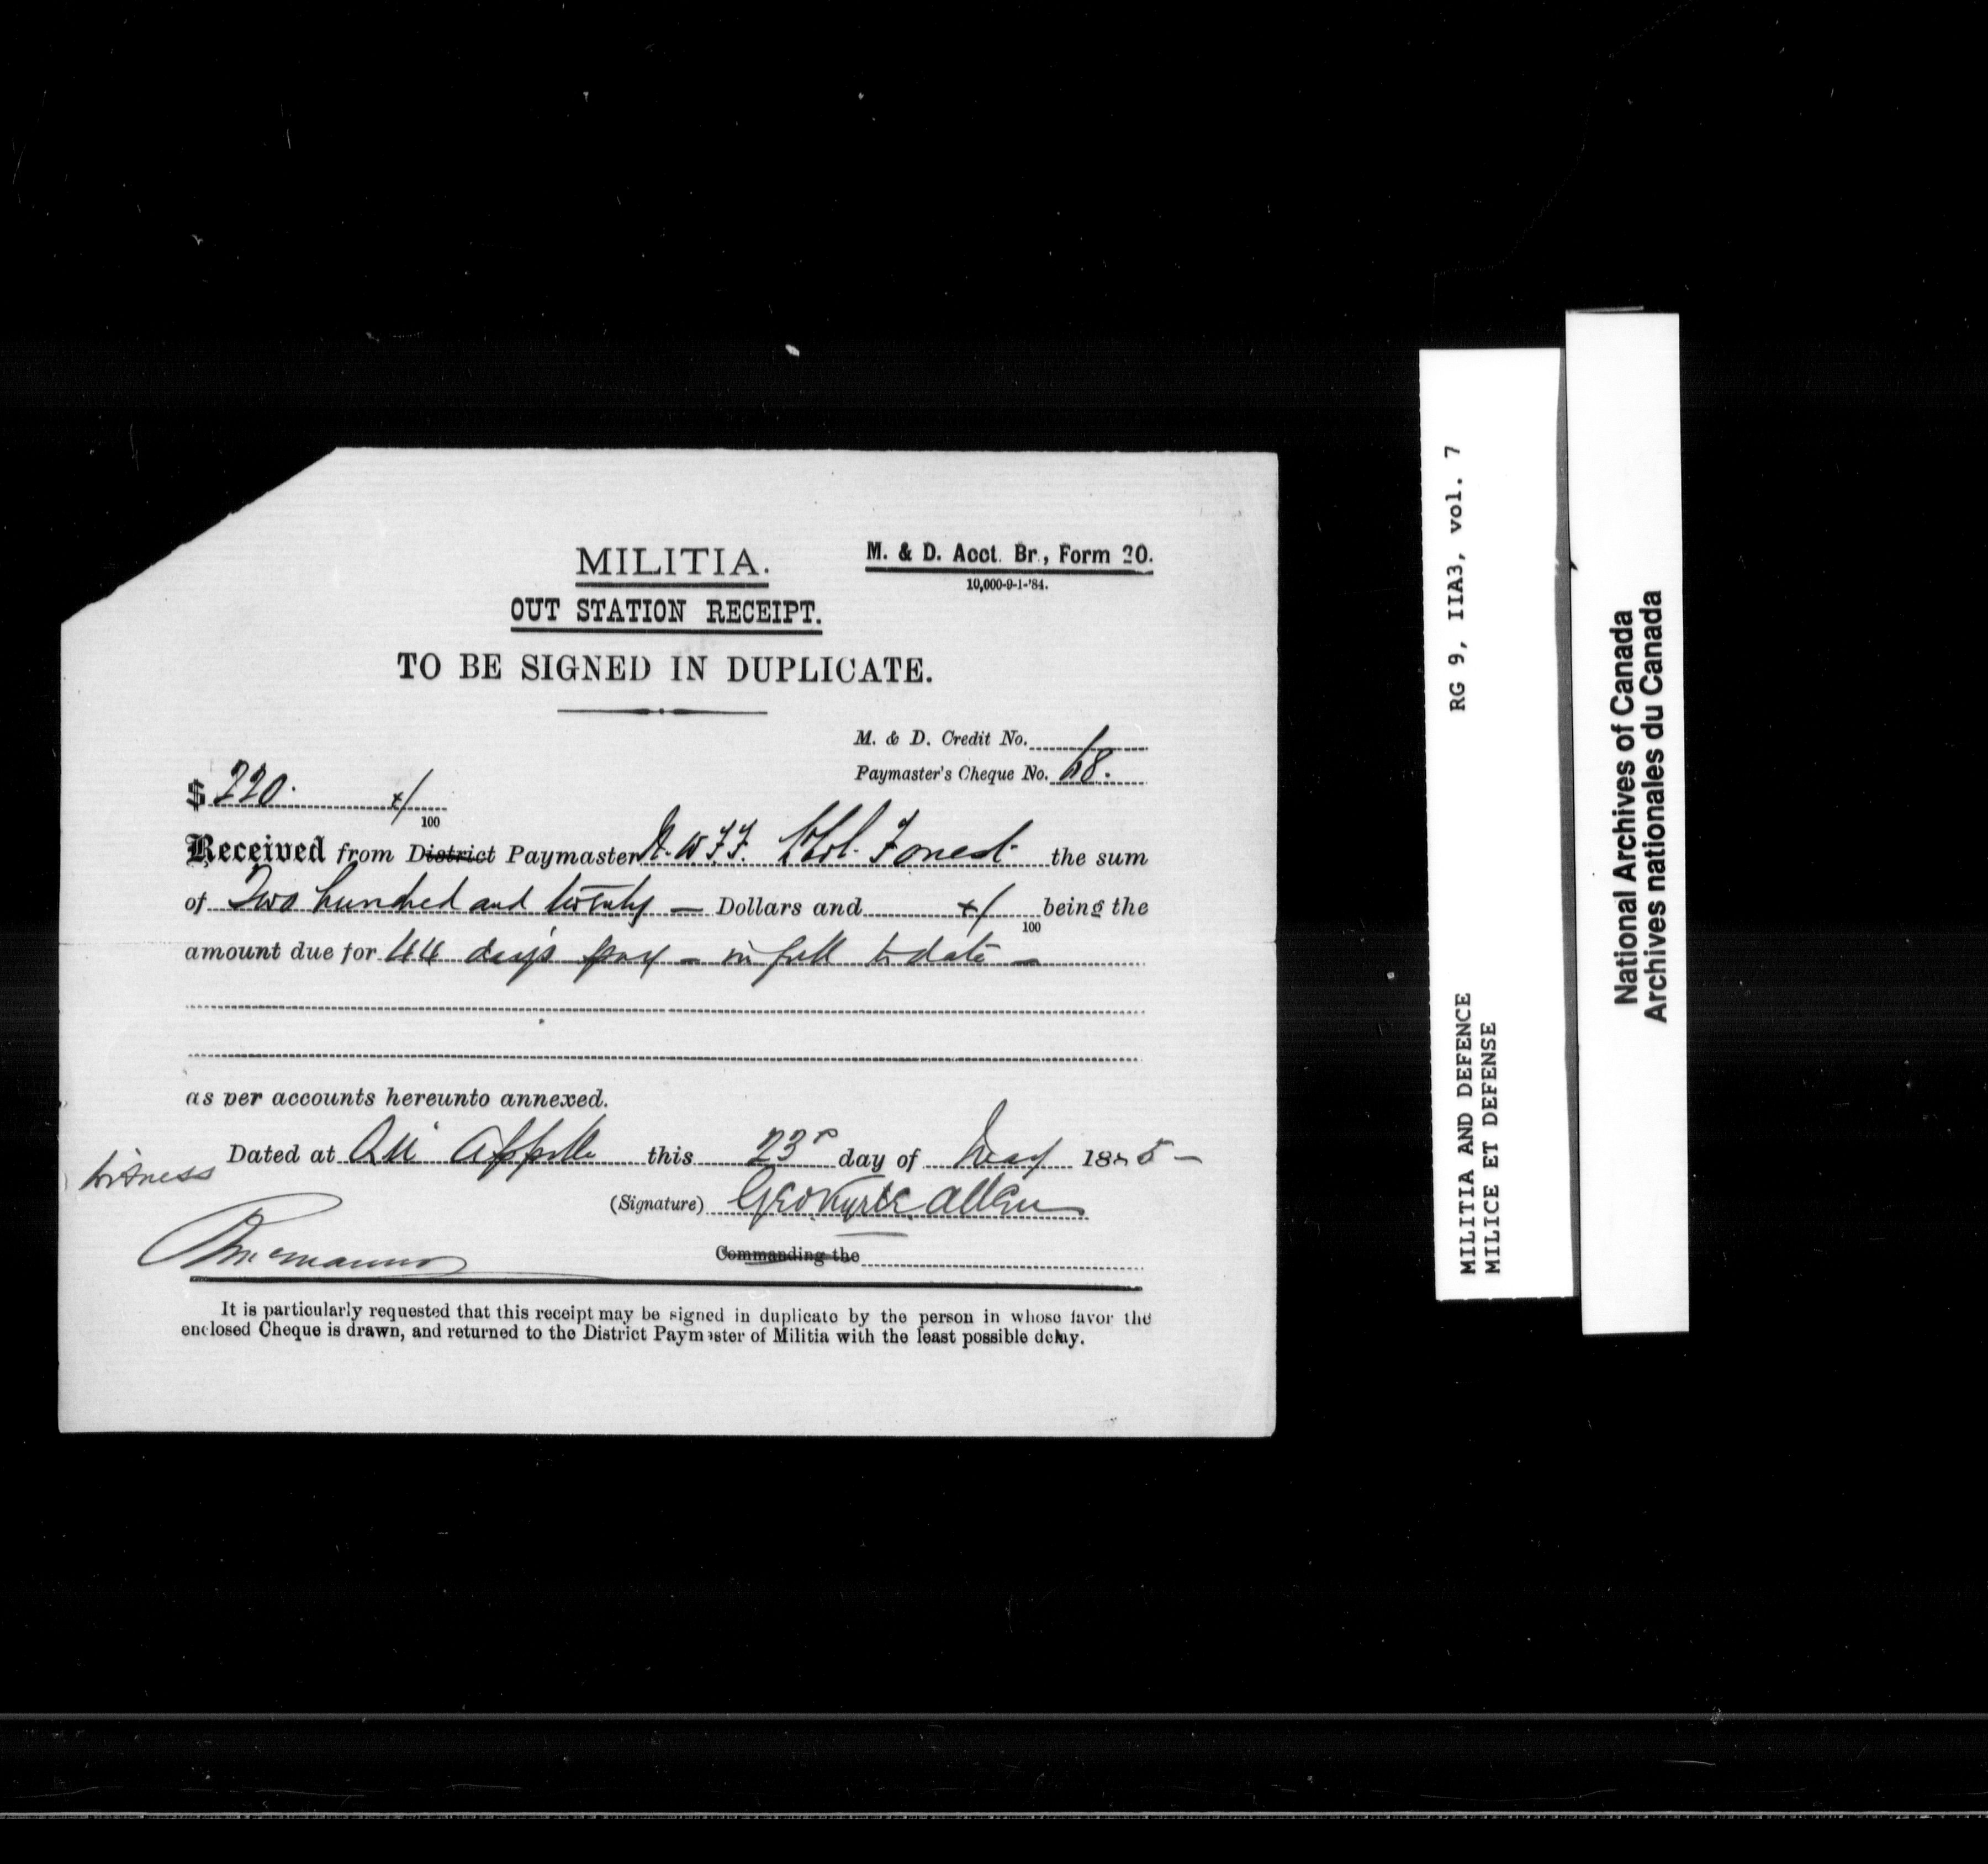 MILITIA.
M. & D. Acct. Br., Form 20.
10,000-9-1-'84.
OUT STATION RECEIPT.
TO BE SIGNED IN DUPLICATE.
M. & D. Credit No.
Paymaster's Cheque No. 68.
$ 220. x/100
Received from District Paymaster N.W.F.F. Forrest the sum
of Two hundred and twenty — Dollars and x/100 being the
amount due for 44 days pay – in full to date –
as per accounts hereunto annexed.
Dated at Qu' Appelle this 23 day of May 1885 –
witness
(Signature) Geo Allen
Commanding the
It is particularly requested that this receipt may be signed in duplicate by the person in whose favor the
enclosed Cheque is drawn, and returned to the District Paymaster of Militia with the least possible delay.
MILITIA AND DEFENCE RG 9, IIA3, vol. 7
MILICE ET DEFENSE
National Archives of Canada
Archives nationales du Canada